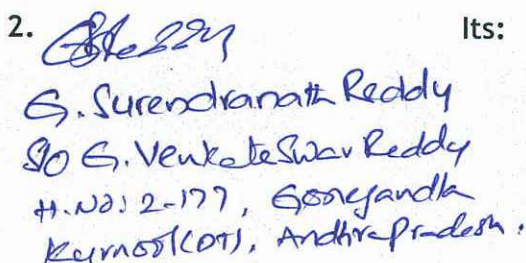 2. Its:
G. Surendranath Reddy
S/o G. Venkateswar Reddy
H.No: 2-177, Gonegandla
Kurnool(DT), Andhra Pradesh.